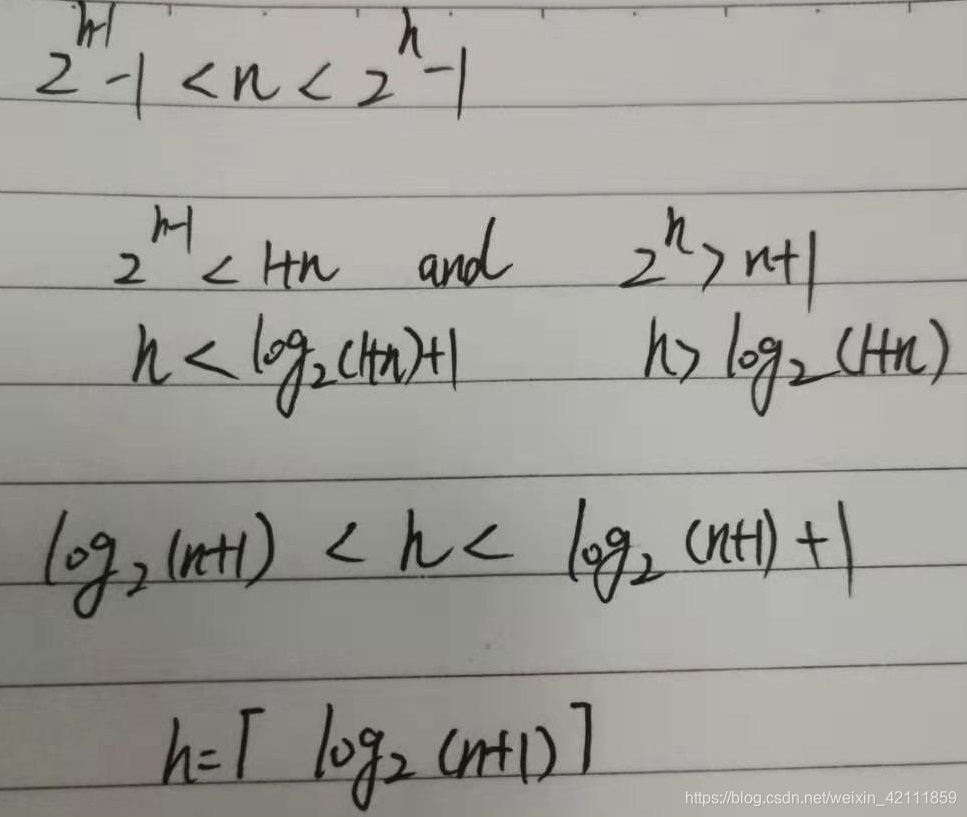 2^{h-1}-1 < n < 2^{h}-1
2^{h-1} < 1+n and 2^{h} > n+1
h < log₂(1+n)+1 h > log₂(1+n)
log₂(n+1) < h < log₂(n+1)+1
h=⌈ log₂(n+1)⌉
https://blog.csdn.net/weixin_42111859